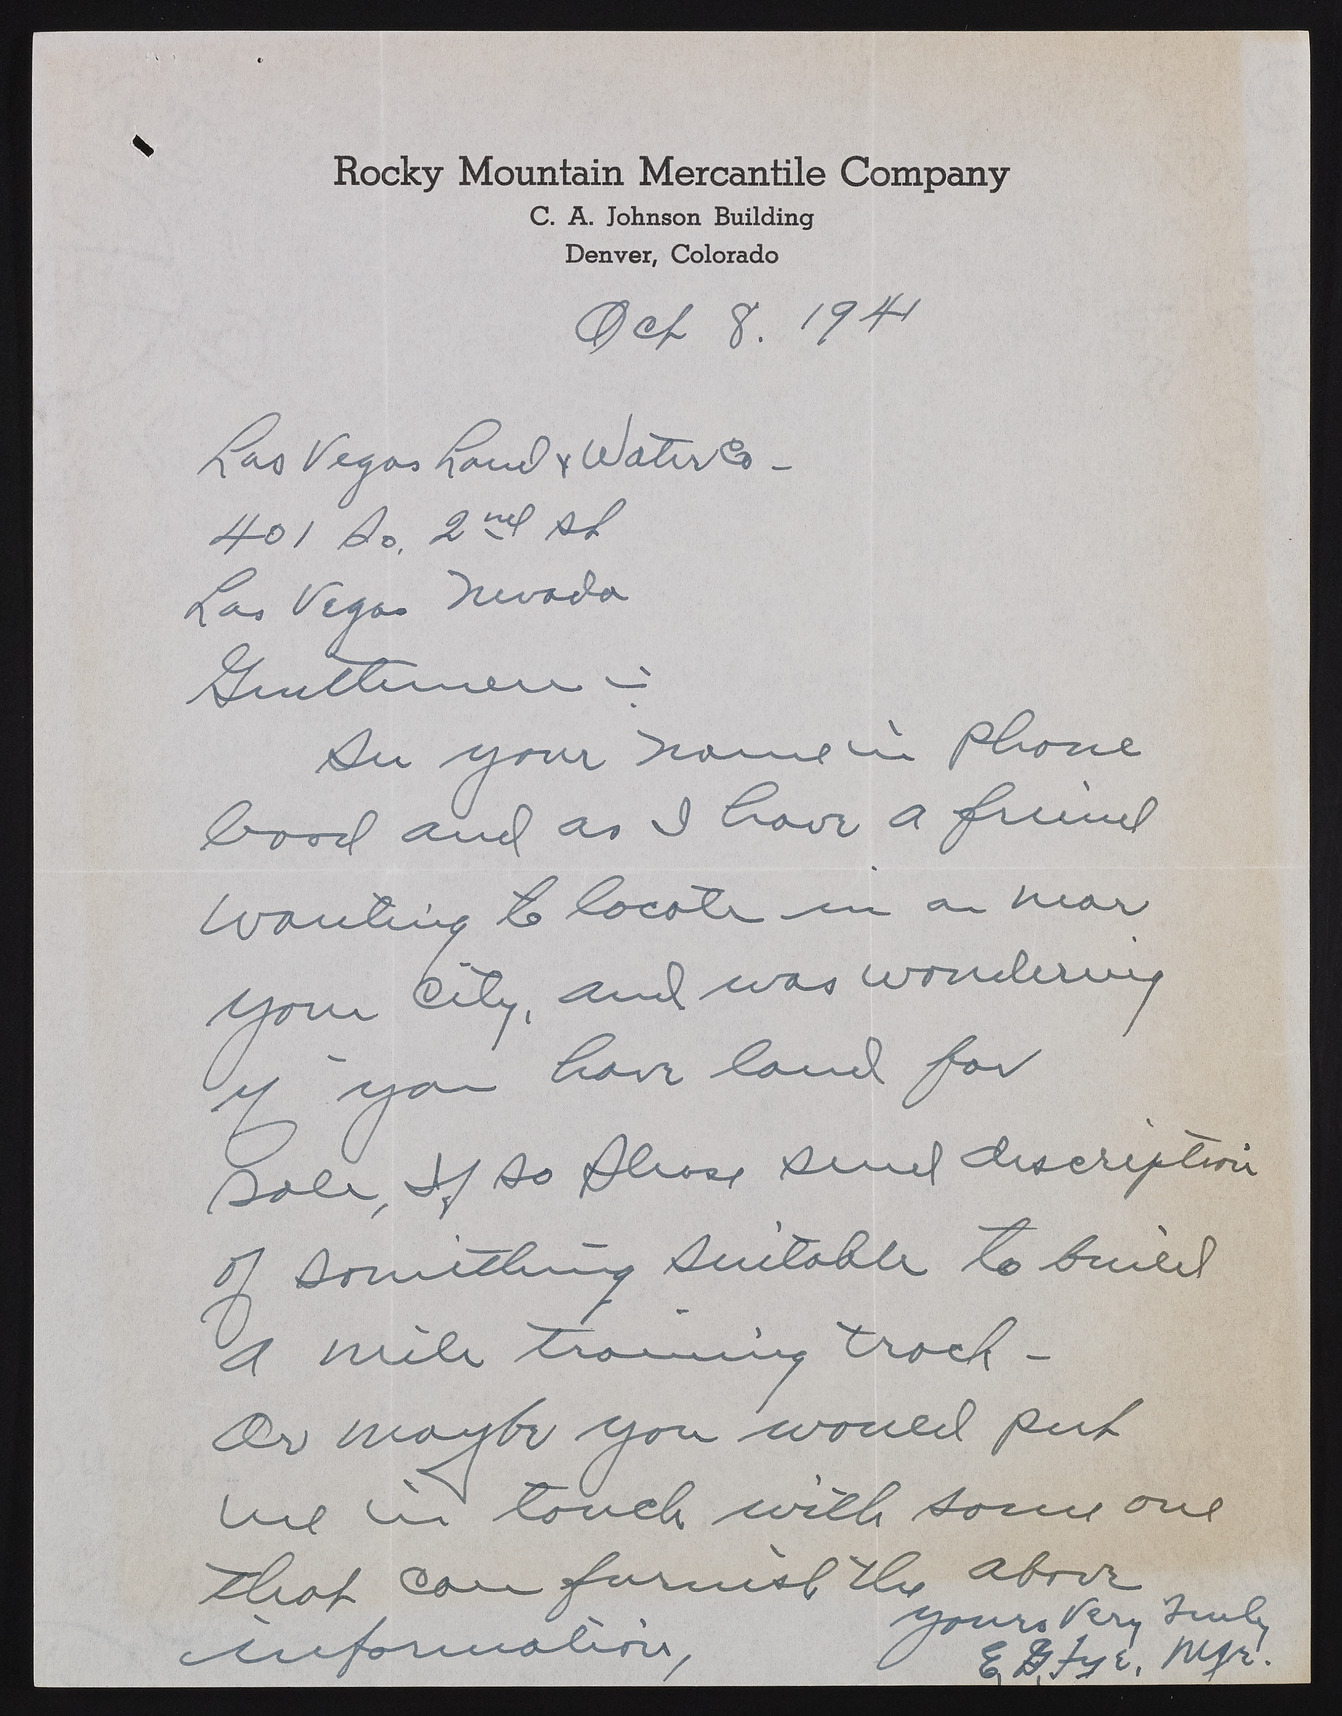 Rocky Mountain Mercantile Company
C. A. Johnson Building
Denver, Colorado
Oct 8. 1941
Las Vegas Land & Water Co -
401 So. 2nd St
Las Vegas Nevada
Gentlemen :-
See your name in phone
bood and as I have a friend
wanting to locate in or near
your city, and was wondering
if you have land for
sale, If so please send description
of something suitable to build
a mile training track -
Or maybe you would put
me in touch with some one
that can furnish the above
information,
yours Very Truly
E. G. Fye, Mgr.